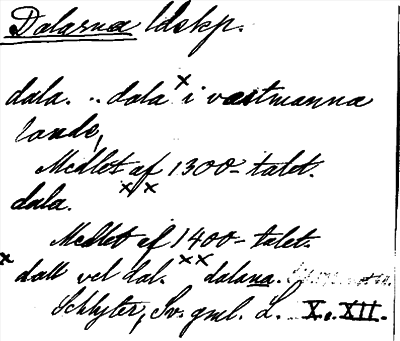 Dalarna ldskp.
dala. .. dala x i væstmanna
lande,
Medlet af 1300-talet.
x x
dala.
Medlet af 1400-talet.
x dall vel dal. xx dalana.
Schlyter, Sv. gml. L. X. XII.